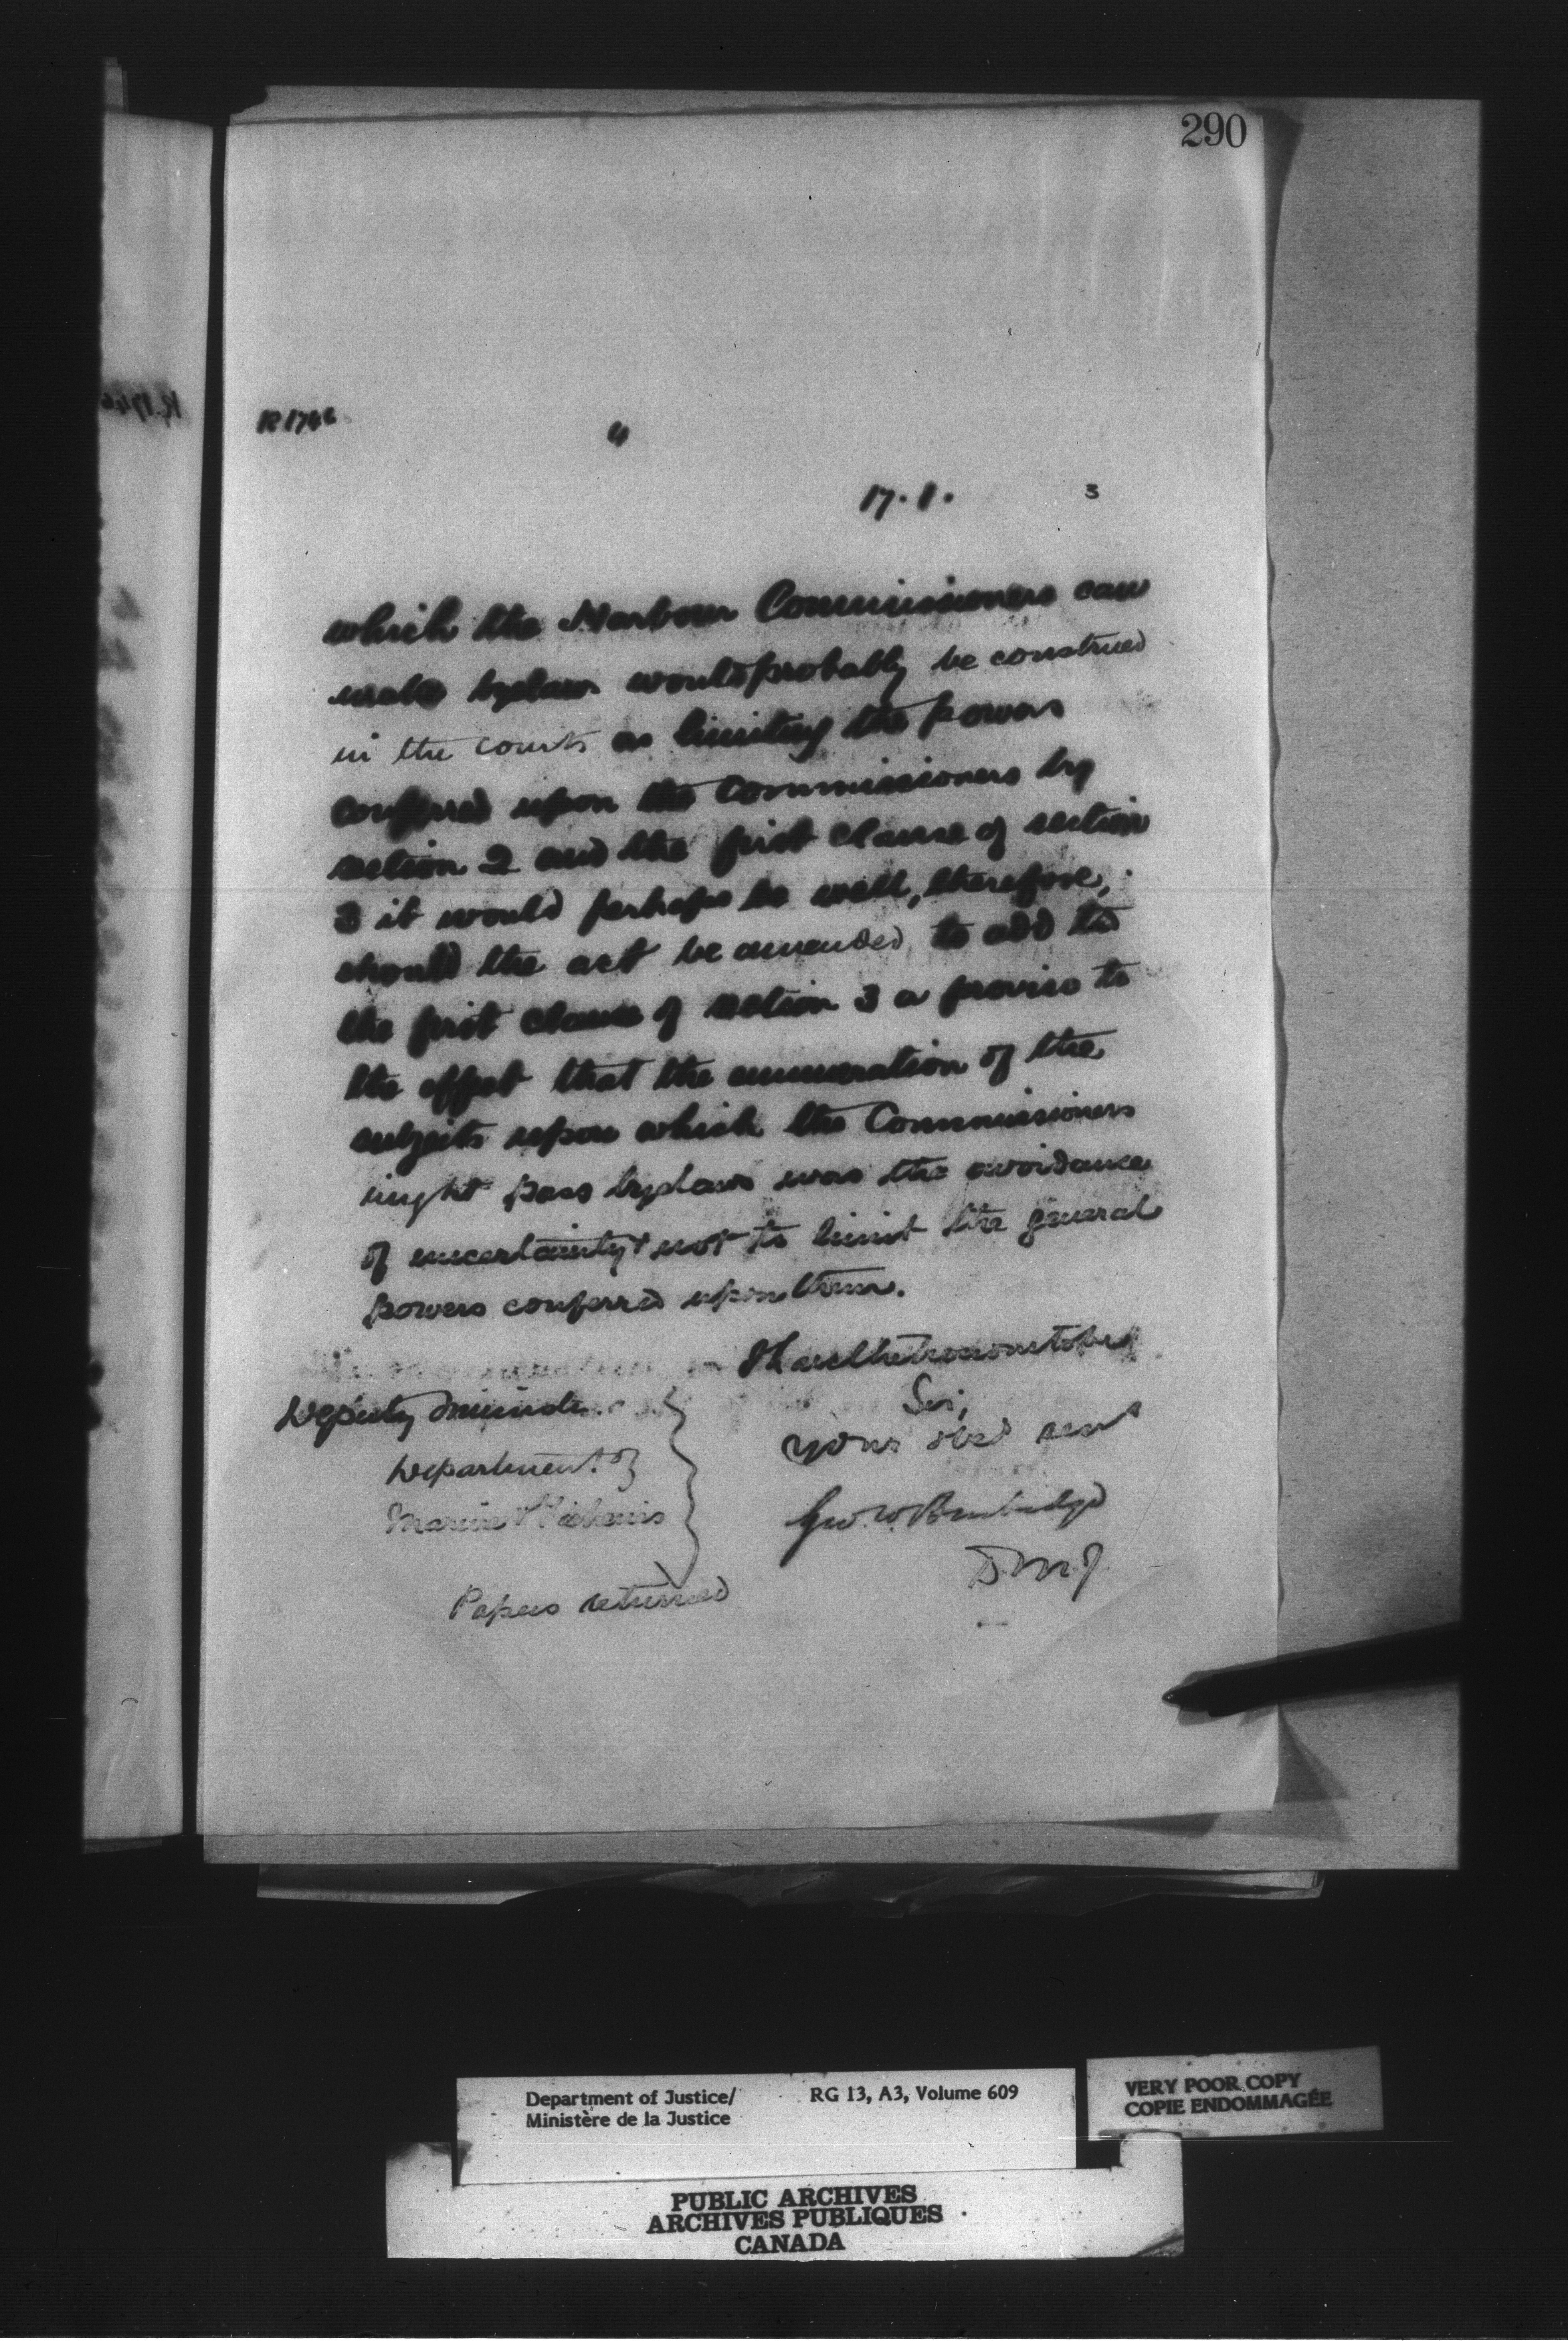 290
R 1746
"
17. 1. 3
which the Harbour Commissioners can
make bylaws would probably be construed
in the courts as limiting the powers
conferred upon the Commissioners by
section 2 and the first clause of section
3 it would perhaps be well, therefore,
should the act be amended, to add to
the first clause of section 3 a proviso to
the effect that the enumeration of the
subjects upon which the Commissioners
might pass bylaws was the avoidance
of uncertainty & not to limit the general
powers conferred upon them.
I have the honour to be
Sir,
Your obed servt
Geo. W. Burbidge
D.M.J.
Deputy Minister
Department of
Marine & Fisheries
Papers returned
Department of Justice/
Ministère de la Justice
RG 13, A3, Volume 609
VERY POOR COPY
COPIE ENDOMMAGÉE
PUBLIC ARCHIVES
ARCHIVES PUBLIQUES
CANADA